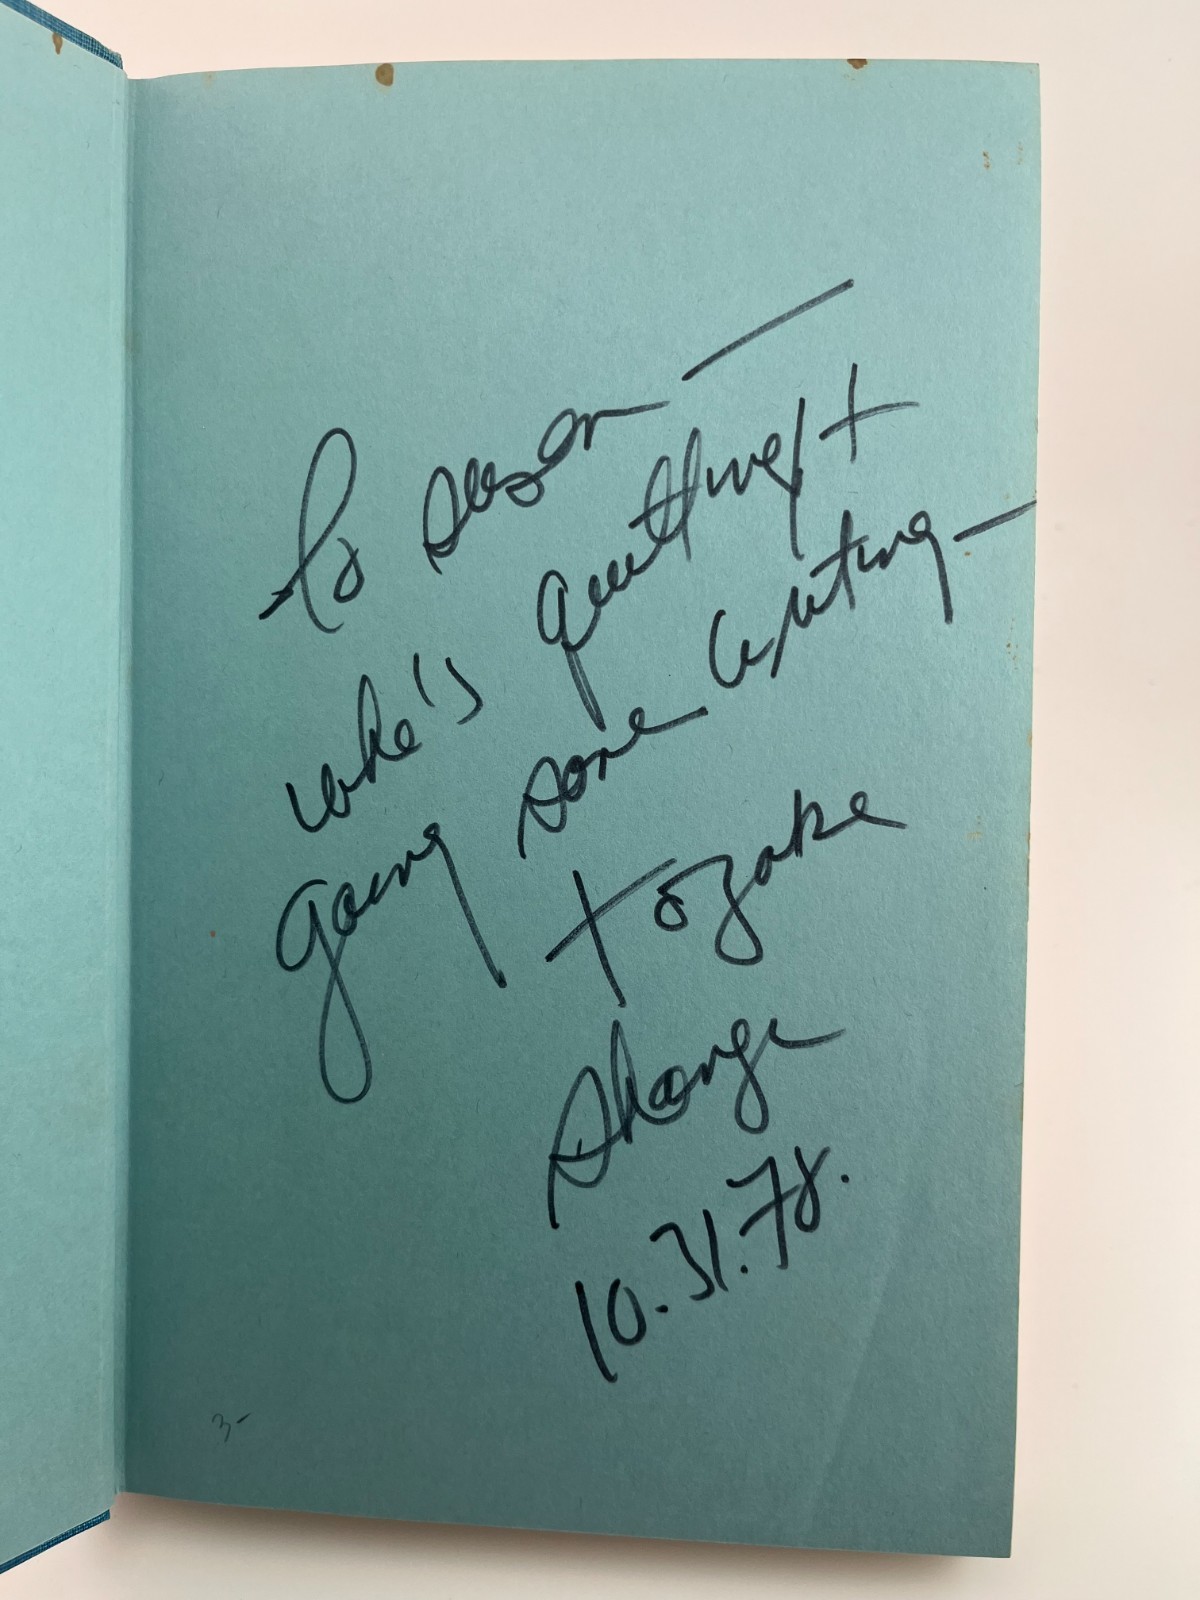 To Susan —
who's quitting +
going some writing —
Ntozake
Shange
10.31.78.
3-